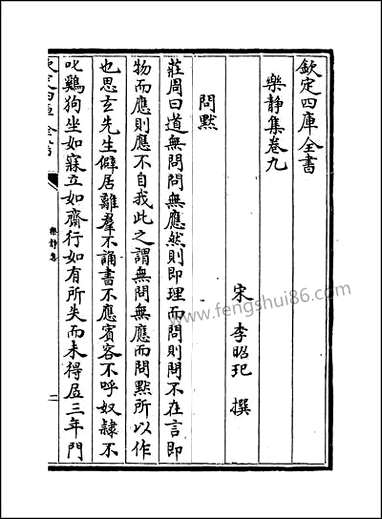 欽定四庫全書
樂靜集卷九
宋 李昭玘 撰
問默
莊周曰道無問問無應然則即理而問則問不在言即
物而應則應不自我此之謂無問無應而問默所以作
也思玄先生僻居離羣不誦書不應賓客不呼奴隸不
叱鷄狗坐如寐立如齋行如有所失而未得居三年門
樂静集
www.fengshui86.com